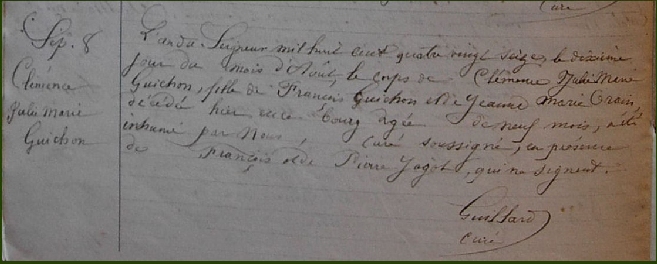 Curé
Sép. 8
Clémence
Julie Marie
Guichon
L'an du Seigneur mil huit cent quatre vingt seize, le dixième
jour du mois d'Août le corps de Clémence Julie Marie
Guichon, fille de François Guichon et de Jeanne Marie
décédé hier en ce bourg âgée de neuf mois, a été
inhumé par Nous, curé soussigné, en présence
de François et de Pierre Jagot, qui ne signent.
Guillard
Curé